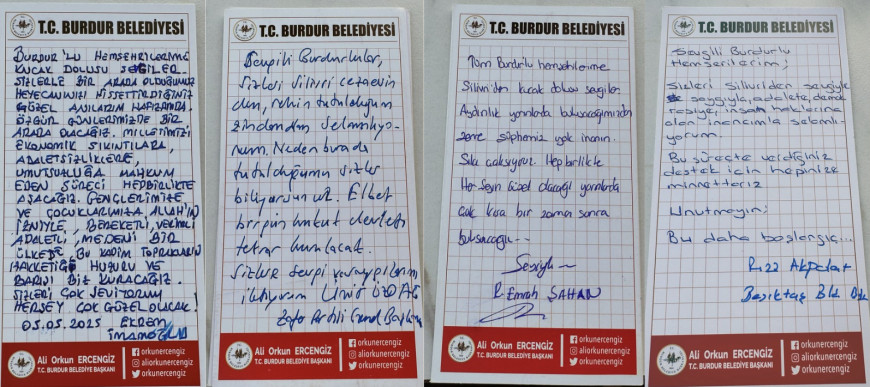 T.C. BURDUR BELEDİYESİ
BURDUR'LU HEMŞEHRİLERİME
KUCAK DOLUSU SEVGİLER
SİZLERLE BİR ARADA OLDUĞUMUZ
HEYECANINIZI HİSSETTİRDİĞİNİZ
GÜZEL ANILARIM HAFIZAMDA.
ÖZGÜR GÜNLERİMİZDE BİR
ARADA OLACAĞIZ. MİLLETİMİZİ
EKONOMİK SIKINTILARA,
ADALETSİZLİKLERE,
UMUTSUZLUĞA MAHKUM
EDEN SÜRECİ HEPBİRLİKTE
AŞACAĞIZ. GENÇLERİMİZE
VE ÇOCUKLARIMIZA ALLAH'IN
İZNİYLE, BEREKETLİ, VERİMLİ
ADALETLİ, MEDENİ BİR
ÜLKEDE, BU KADİM TOPRAKLARIN
HAKKETİĞİ HUZURU VE
BARIŞI BİZ KURACAĞIZ.
SİZLERİ ÇOK SEVİYORUM
HERŞEY ÇOK GÜZEL OLACAK!
05.05.2025 EKREM
İMAMOĞLU
Ali Orkun ERCENGİZ
T.C. BURDUR BELEDİYE BAŞKANI
orkunercengiz
aliorkunercengiz
orkunercengiz
T.C. BURDUR BELEDİYESİ
Sevgili Burdurlular,
Sizleri Silivri cezaevin
den, rehin tutulduğum
zindandan selamlıyo-
rum. Neden burada
tutulduğumu sizler
biliyorsunuz. Elbet
birgün hukuk devleti
tekrar kurulacak.
Sizlere sevgi ve saygılarımı
iletiyorum Ümit ÖZDAĞ
Zafer Partisi Genel Başkanı
Ali Orkun ERCENGİZ
T.C. BURDUR BELEDİYE BAŞKANI
orkunercengiz
aliorkunercengiz
orkunercengiz
T.C. BURDUR BELEDİYESİ
Tüm Burdurlu hemşehrilerime
Silivri'den kucak dolusu sevgiler
Aydınlık yarınlarda buluşacağımızdan
zerre şüpheniz yok inanın.
Sıkı çalışıyoruz. Hep birlikte
Her Şeyin Güzel olacağı yarınlarda
çok kısa bir zaman sonra
buluşacağız..
Sevgiyle
R. Emrah ŞAHAN
Ali Orkun ERCENGİZ
T.C. BURDUR BELEDİYE BAŞKANI
orkunercengiz
aliorkunercengiz
orkunercengiz
T.C. BURDUR BELEDİYESİ
Sevgili Burdurlu
Hemşerilerim;
Sizleri Silivri'den sevgiyle
saygıyla, adalete, demok
rasiye, insan haklarına
olan inancımla selamlı-
yorum.
Bu süreçte verdiğiniz
destek için hepinize
minnettarız
Unutmayın;
Bu daha başlangıç...
Rıza Akpolat
Beşiktaş Bld. Bşk.
Ali Orkun ERCENGİZ
T.C. BURDUR BELEDİYE BAŞKANI
orkunercengiz
aliorkunercengiz
orkunercengiz